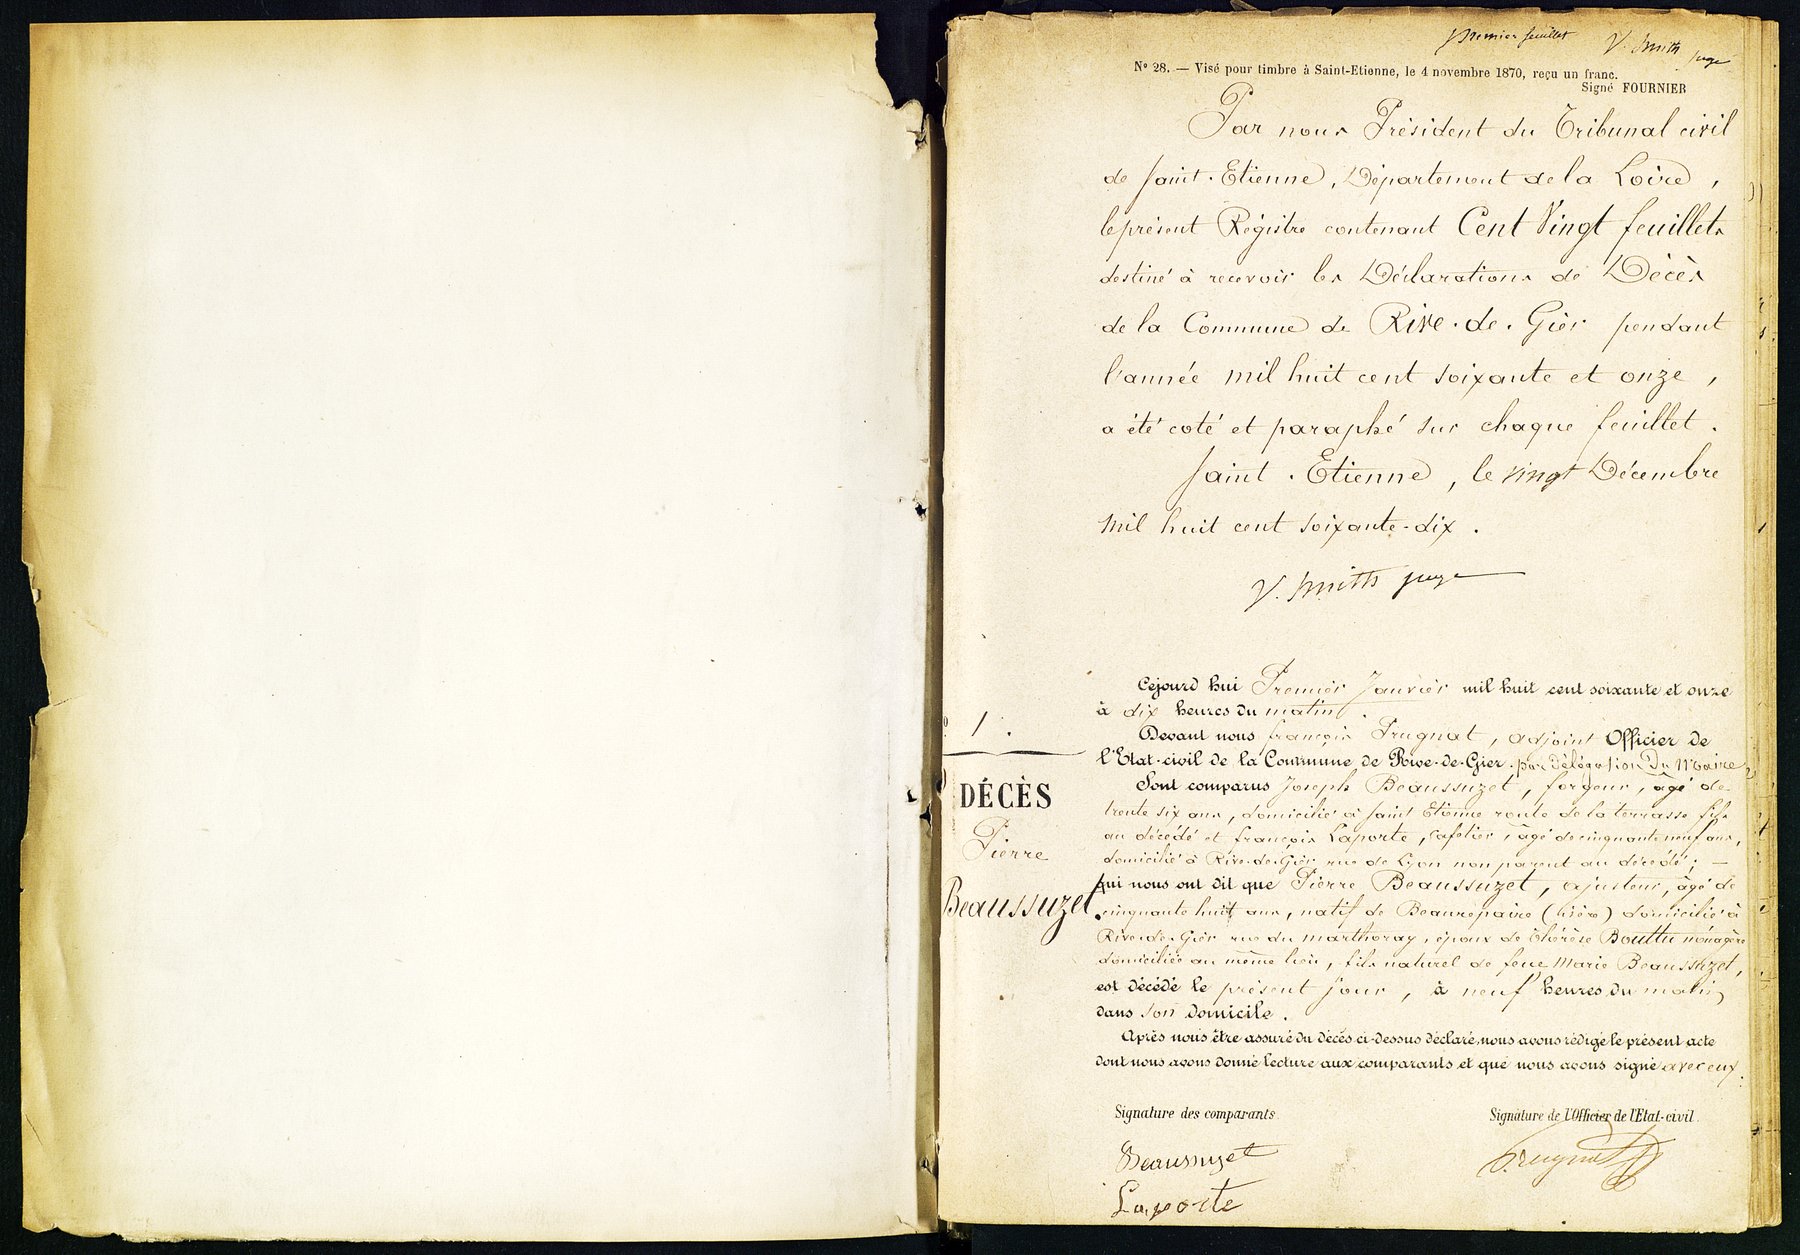 premier feuillet V. Smith juge
N° 28. — Visé pour timbre à Saint-Etienne, le 4 novembre 1870, reçu un franc.
Signé FOURNIER
Par nous Président du Tribunal civil
de Saint-Etienne, Département de la Loire,
le présent Régistre contenant Cent Vingt feuillets
destiné à recevoir les Déclarations de Décès
de la Commune de Rive-de-Gier pendant
l'année mil huit cent soixante et onze,
a été coté et paraphé sur chaque feuillet.
Saint-Etienne, le vingt Décembre
mil huit cent soixante-dix.
V. Smith juge
Cejourd'hui Premier Janvier mil huit cent soixante et onze
à dix heures du matin.
Devant nous françois Prugnat, adjoint Officier de
l'Etat-civil de la Commune de Rive-de-Gier. par délégation Du Maire
Sont comparus Joseph Beaussuzet, forgeur, âgé de
trente six ans, domicilié à Saint Etienne route de la terrasse fils
au décédé et françois Laporte, cafetier, âgé de cinquante neuf ans,
domicilié à Rive-de-Gier rue de Lyon non parent au décédé; —
qui nous ont dit que Pierre Beaussuzet, ajusteur, âgé de
cinquante huit ans, natif de Beaurepaire (isère) domicilié à
Rive-de-Gier rue du marthoray, époux de thérèse Bouttu ménagère
domiciliée au même lieu, fils naturel de feue Marie Beaussuzet,
est décédé le présent jour, à neuf heures du matin
dans son domicile.
Après nous être assuré du décès ci-dessus déclaré, nous avons rédigé le présent acte
dont nous avons donné lecture aux comparants et que nous avons signé avec eux.
1.
DÉCÈS
Pierre
Beaussuzet
Signature des comparants
Signature de l'Officier de l'Etat-civil.
Beaussuzet
Prugnat
Laporte